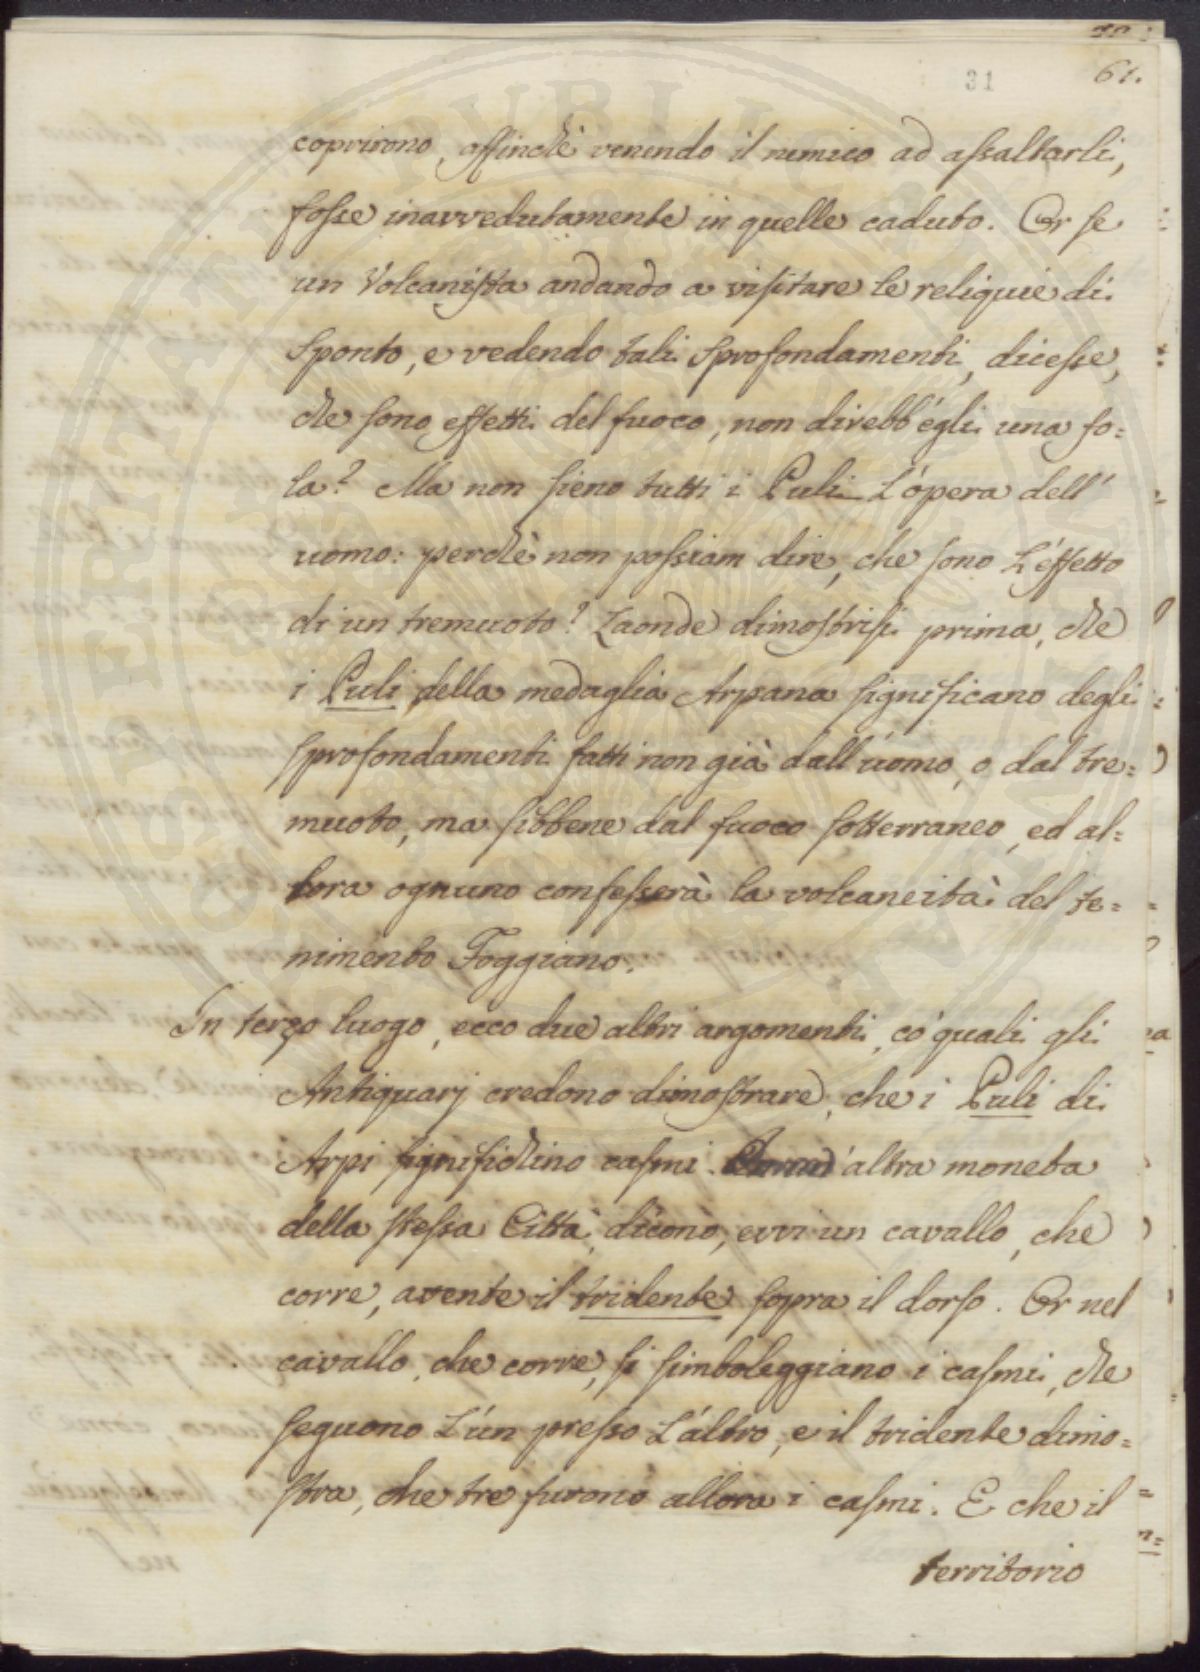 31
61.
coprirono, affinchè venendo il nimico ad assaltarli,
fosse inavvedutamente in quelle caduto. Or se
un Volcanista andando a visitare le reliquie di
Siponto, e vedendo tali sprofondamenti, dicesse,
che sono effetti del fuoco, non direbb'egli una fo=
la? Ma non sieno tutti i Puli l'opera dell'
uomo: perchè non possiam dire, che sono l'effetto
di un tremuoto? Laonde dimostrisi prima, che
i Puli della medaglia Arpana significano degli
sprofondamenti fatti non già dall'uomo, o dal tre=
muoto, ma sibbene dal fuoco sotterraneo, ed al=
lora ognuno confesserà la volcaneità del te=
nimento Foggiano.
In terzo luogo, ecco due altri argomenti, co' quali gli
Antiquarj credono dimostrare, che i Puli di
Arpi significhino casmi. altra moneta
della stessa Città, dicono, evvi un cavallo, che
corre, avente il tridente sopra il dorso. Or nel
cavallo, che corre, si simboleggiano i casmi, che
seguono l'un presso l'altro, e il tridente dimo=
stra, che tre furono allora i casmi. E che il
territorio